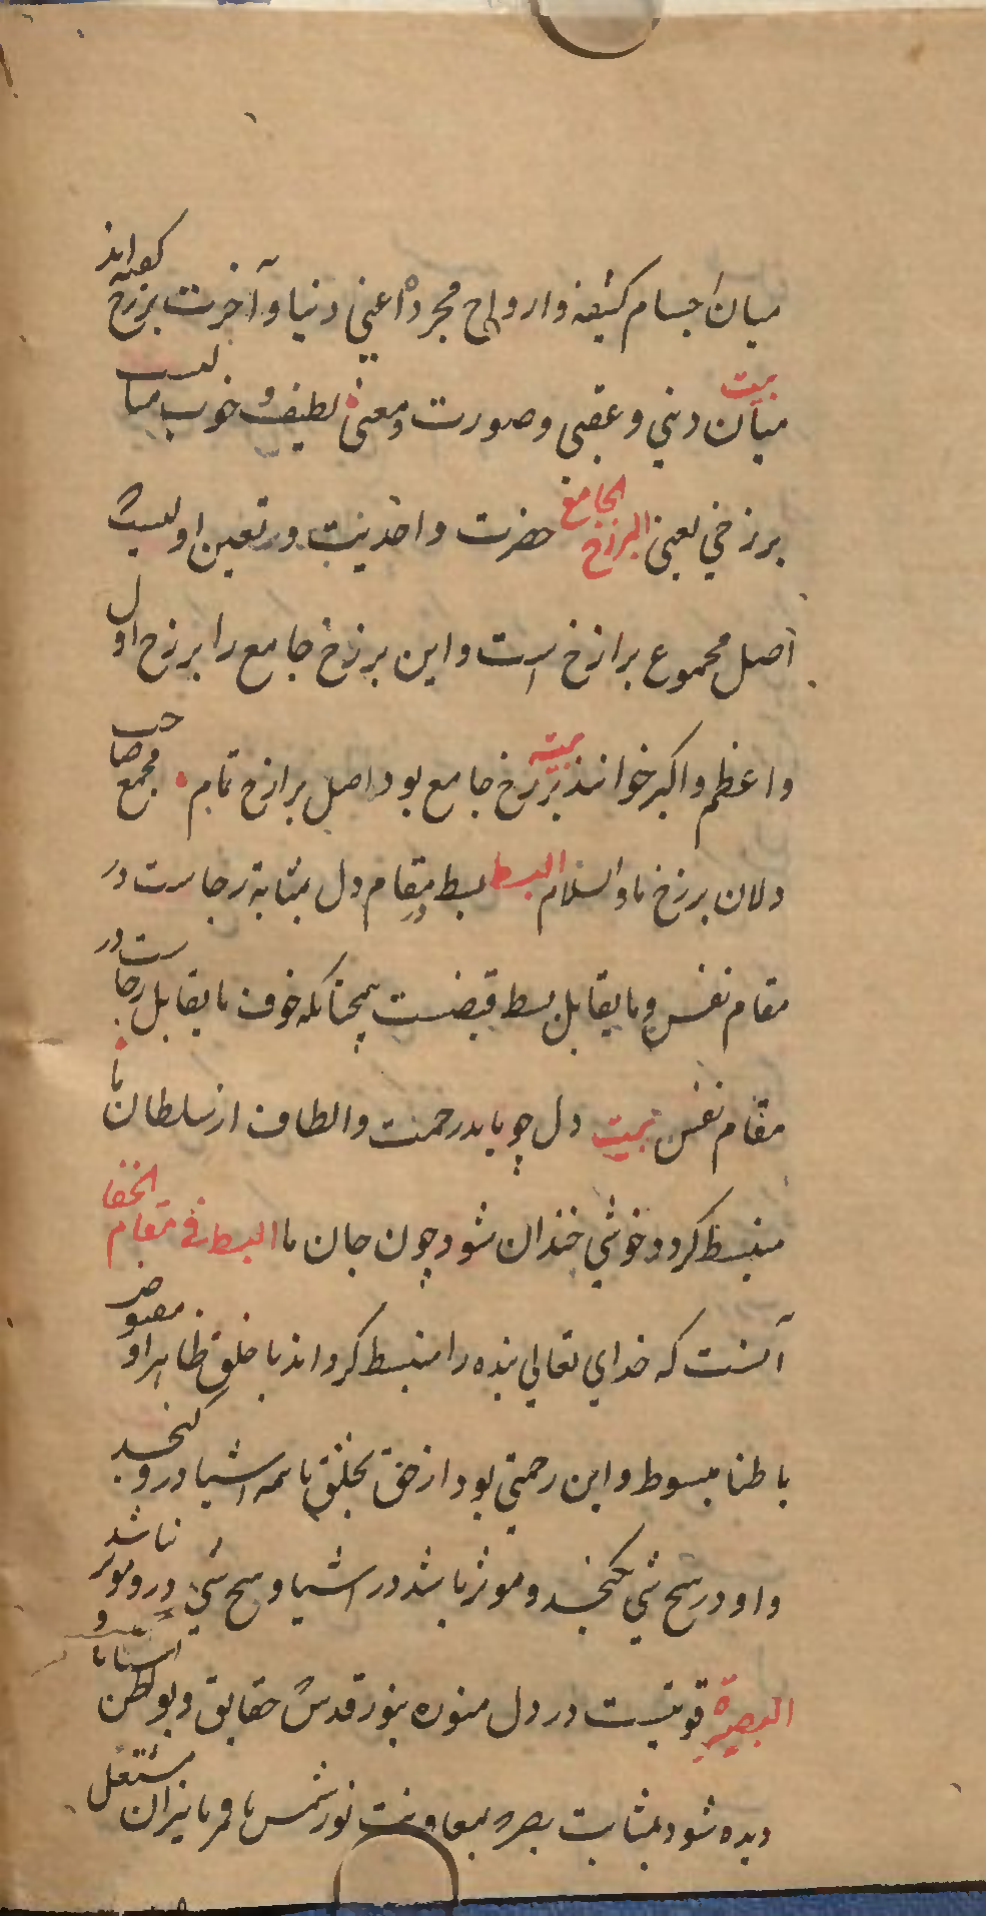 میان اجسام کثیفه و ارواح مجرده اعنی دنیا و آخرت برزخ گفته‌اند
بیت میان دنیی و عقبی و صورت و معنی لطیف و خوب میانیست
برزخی یعنی البرزخ الجامع حضرت واحدیت و تعین اولیست
اصل مجموع برازخ است و این برزخ جامع را برزخ اول
و اعظم و اکبر خوانند بیت برزخ جامع بود اصل برازخ تمام مجمع صاحب
دلان برزخ ما والسلام البسط بسط در مقام دل بمثابة رجاست در
مقام نفس و ما یقابل بسط قبضست همچنانکه خوف ما یقابل رجاست در
مقام نفس بیت دل چو یابد رحمت و الطاف از سلطان ما
منبسط گردد خوشی خندان شود چون جان ما البسط فی مقام الخفا
آنست که خدای تعالی بنده را منبسط گرداند با خلق ظاهرا و مقبوض
باطنا مبسوط و این رحمتی بود از حق بخلق تا همه اشیا درو گنجد
و او در هیچ شی نگنجد و موثر باشد در اشیا و هیچ شی درو موثر نباشد
البصیرة قوتیست در دل منوره بنور قدس حقایق و بواطن اشیا با و
دیده شود بمثابت بصر بمعاونت نور شمس یا قمر یا نیران مشتعل